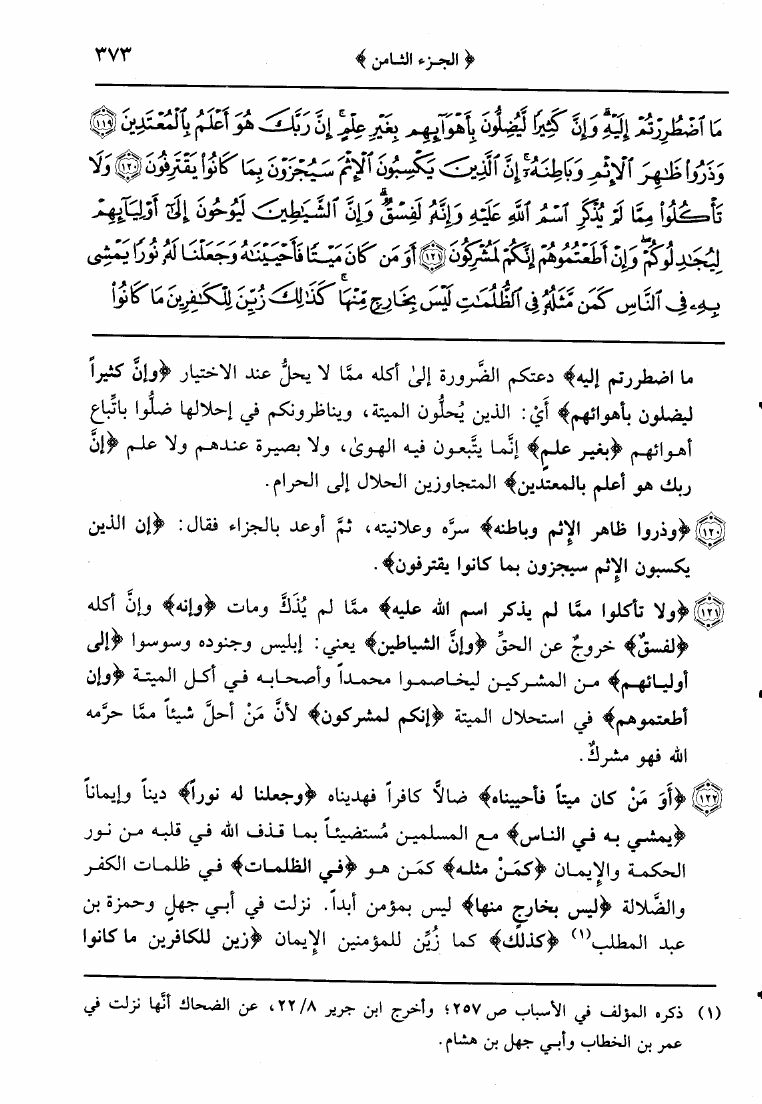 ﴿ الجزء الثامن ﴾ ٣٧٣
مَا ٱضْطُرِرْتُمْ إِلَيْهِ ۗ وَإِنَّ كَثِيرًا لَّيُضِلُّونَ بِأَهْوَآئِهِم بِغَيْرِ عِلْمٍ ۗ إِنَّ رَبَّكَ هُوَ أَعْلَمُ بِٱلْمُعْتَدِينَ ١١٩
وَذَرُوا۟ ظَٰهِرَ ٱلْإِثْمِ وَبَاطِنَهُۥٓ ۚ إِنَّ ٱلَّذِينَ يَكْسِبُونَ ٱلْإِثْمَ سَيُجْزَوْنَ بِمَا كَانُوا۟ يَقْتَرِفُونَ ١٢٠ وَلَا
تَأْكُلُوا۟ مِمَّا لَمْ يُذْكَرِ ٱسْمُ ٱللَّهِ عَلَيْهِ وَإِنَّهُۥ لَفِسْقٌ ۗ وَإِنَّ ٱلشَّيَٰطِينَ لَيُوحُونَ إِلَىٰٓ أَوْلِيَآئِهِمْ
لِيُجَٰدِلُوكُمْ ۖ وَإِنْ أَطَعْتُمُوهُمْ إِنَّكُمْ لَمُشْرِكُونَ ١٢١ أَوَمَن كَانَ مَيْتًا فَأَحْيَيْنَٰهُ وَجَعَلْنَا لَهُۥ نُورًا يَمْشِى
بِهِۦ فِى ٱلنَّاسِ كَمَن مَّثَلُهُۥ فِى ٱلظُّلُمَٰتِ لَيْسَ بِخَارِجٍ مِّنْهَا ۚ كَذَٰلِكَ زُيِّنَ لِلْكَٰفِرِينَ مَا كَانُوا۟
ما اضطررتم إليه﴾ دعتكم الضَّرورة إلىٰ أكله ممَّا لا يحلُّ عند الاختيار ﴿وإنَّ كثيراً
ليضلون بأهوائهم﴾ أيْ: الذين يُحلُّون الميتة، ويناظرونكم في إحلالها ضلُّوا باتِّباع
أهوائهم ﴿بغير علمٍ﴾ إنَّما يتَّبعون فيه الهوىٰ، ولا بصيرة عندهم ولا علم ﴿إنَّ
ربك هو أعلم بالمعتدين﴾ المتجاوزين الحلال إلى الحرام.
١٢٠ ﴿وذروا ظاهر الإِثم وباطنه﴾ سرَّه وعلانيته، ثمَّ أوعد بالجزاء فقال: ﴿إن الذين
يكسبون الإِثم سيجزون بما كانوا يقترفون﴾.
١٢١ ﴿ولا تأكلوا ممَّا لم يذكر اسم الله عليه﴾ ممَّا لم يُذَكَّ ومات ﴿وإنه﴾ وإنَّ أكله
﴿لفسقٌ﴾ خروجٌ عن الحقِّ ﴿وإنَّ الشياطين﴾ يعني: إبليس وجنوده وسوسوا ﴿إلى
أوليائهم﴾ من المشركين ليخاصموا محمداً وأصحابه في أكل الميتة ﴿وإن
أطعتموهم﴾ في استحلال الميتة ﴿إنكم لمشركون﴾ لأنَّ مَنْ أحلَّ شيئاً ممَّا حرَّمه
الله فهو مشركٌ.
١٢٢ ﴿أَوَ مَنْ كان ميتاً فأحييناه﴾ ضالاًّ كافراً فهديناه ﴿وجعلنا له نوراً﴾ ديناً وإيماناً
﴿يمشي به في الناس﴾ مع المسلمين مُستضيئاً بما قذف الله في قلبه من نور
الحكمة والإِيمان ﴿كمَنْ مثله﴾ كمَن هو ﴿في الظلمات﴾ في ظلمات الكفر
والضَّلالة ﴿ليس بخارجٍ منها﴾ ليس بمؤمن أبداً. نزلت في أبي جهلٍ وحمزة بن
عبد المطلب(١) ﴿كذلك﴾ كما زُيِّن للمؤمنين الإِيمان ﴿زين للكافرين ما كانوا
(١) ذكره المؤلف في الأسباب ص ٢٥٧؛ وأخرج ابن جرير ٢٢/٨، عن الضحاك أنَّها نزلت في
عمر بن الخطاب وأبي جهل بن هشام.